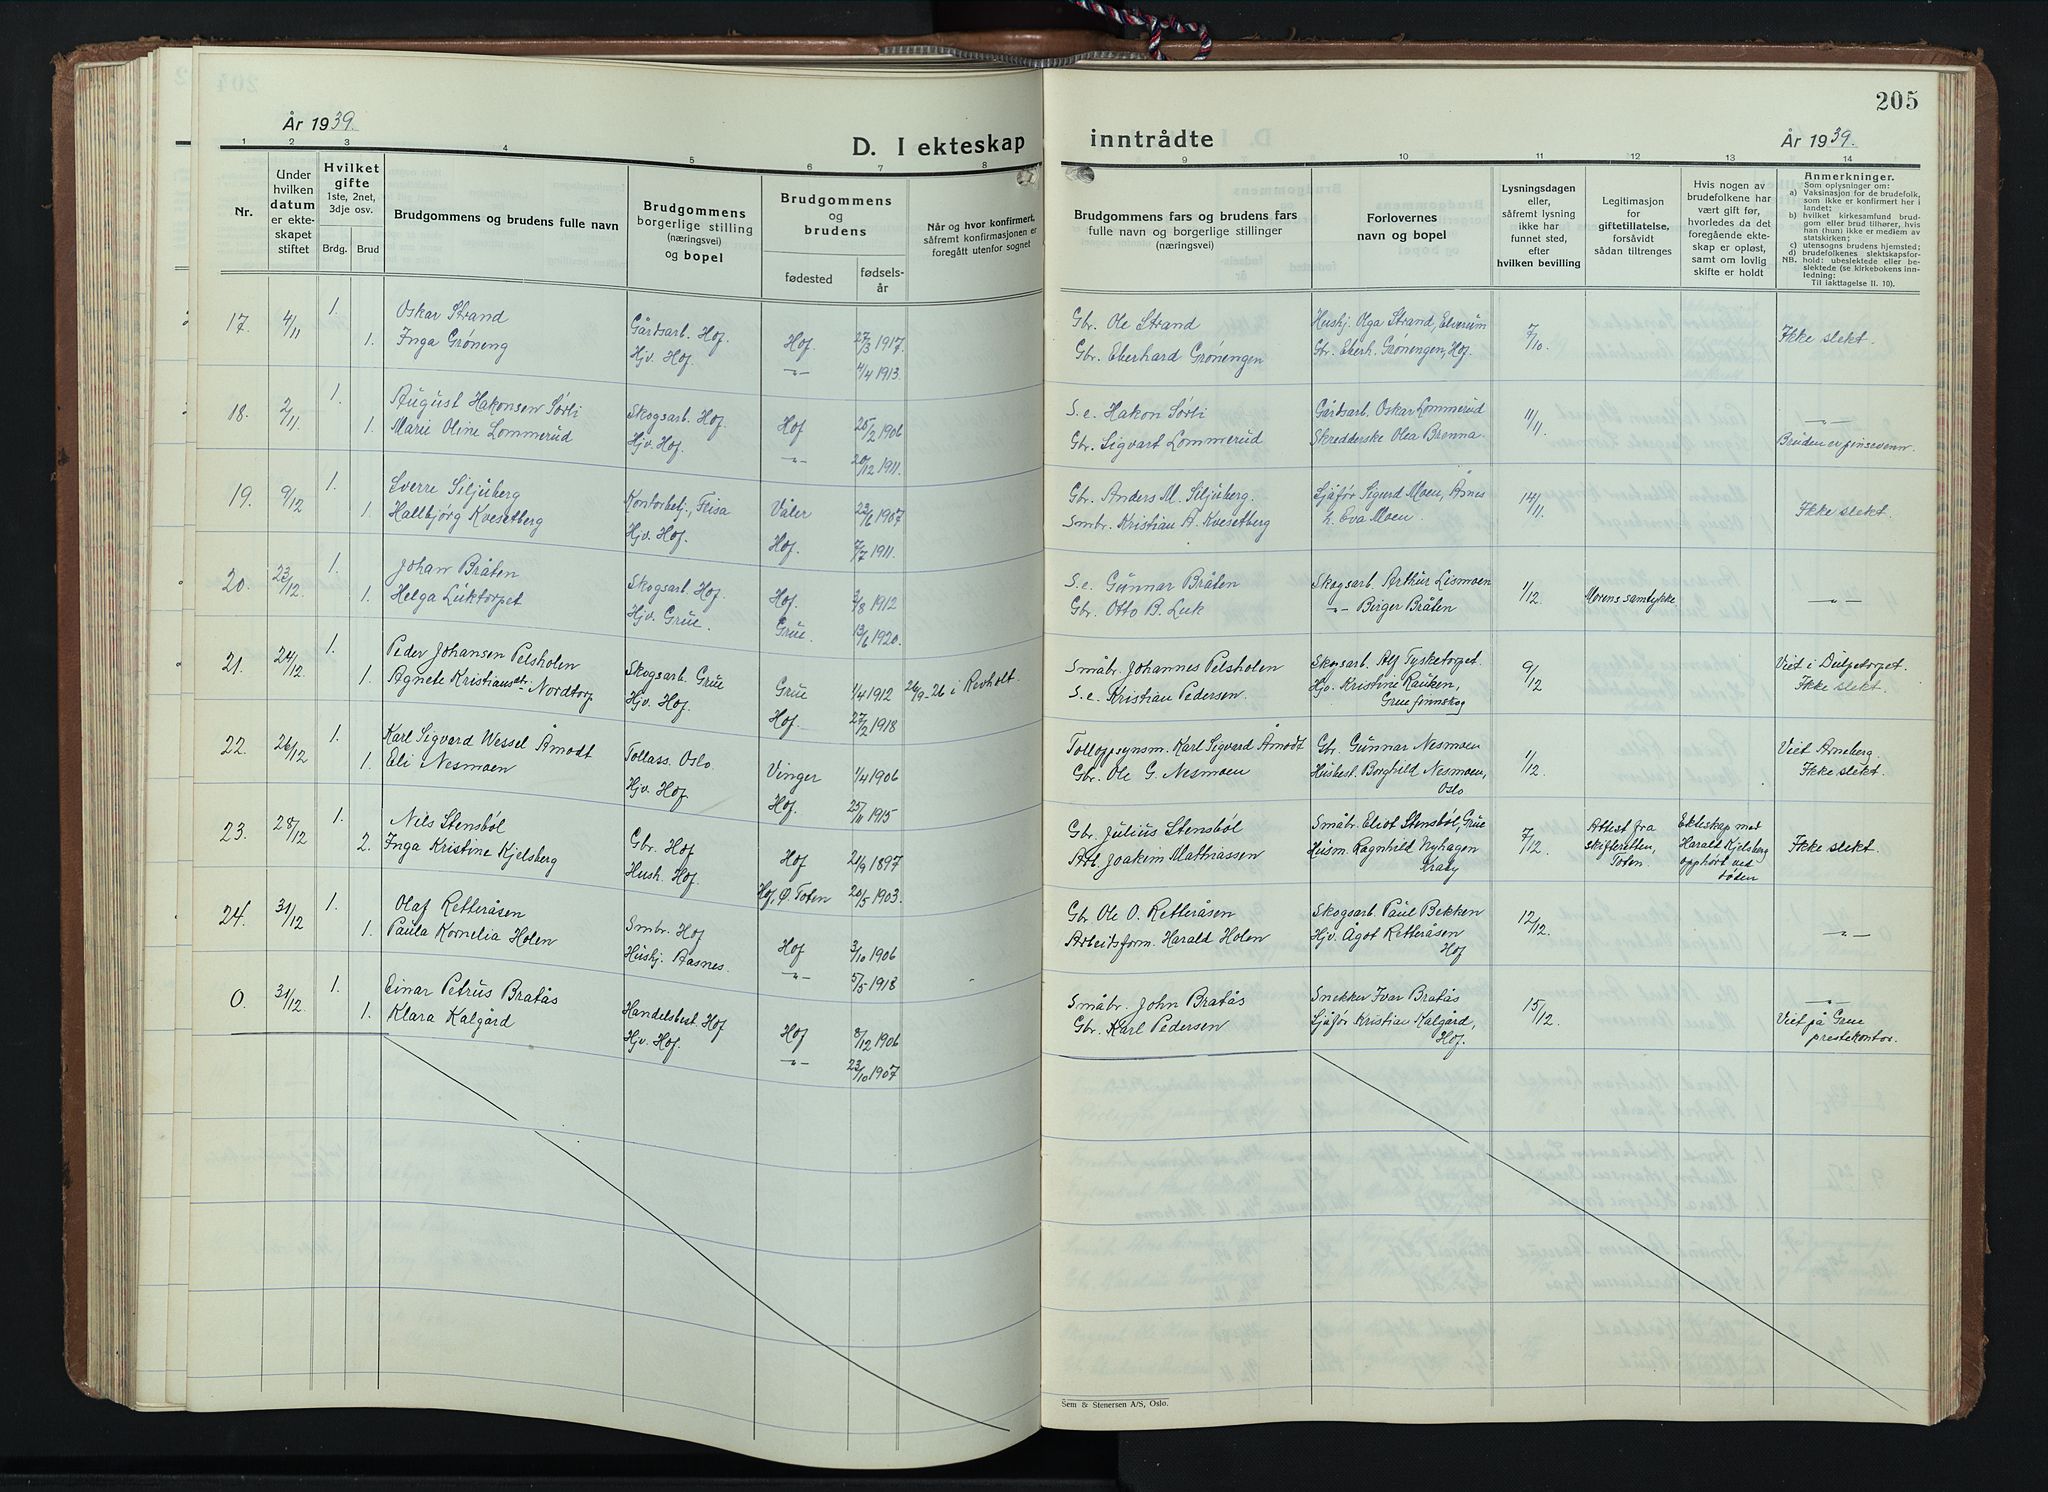 205
År 1939.
D. I ekteskap inntrådte
År 1939.
1 2 3 4 5 6 7 8 9 10 11 12 13 14
Nr.
Under hvilken datum er ekteskapet stiftet
Hvilket gifte 1ste, 2net, 3dje osv.
Brdg. Brud
Brudgommens og brudens fulle navn
Brudgommens borgerlige stilling (næringsvei) og bopel
Brudgommens og brudens
fødested
fødselsår
Når og hvor konfirmert, såfremt konfirmasjonen er foregått utenfor sognet
Brudgommens fars og brudens fars fulle navn og borgerlige stillinger (næringsvei)
Forlovernes navn og bopel
Lysningsdagen eller, såfremt lysning ikke har funnet sted, efter hvilken bevilling
Legitimasjon for giftetillatelse, forsåvidt sådan tiltrenges
Hvis nogen av brudefolkene har vært gift før, hvorledes da det foregående ekteskap er opløst, samt om lovlig skifte er holdt
Anmerkninger.
Som oplysninger om:
a) Vaksinasjon for de brudefolk, som ikke er konfirmert her i landet;
b) hvilket kirkesamfund brudgom eller brud tilhører, hvis han (hun) ikke er medlem av statskirken;
c) utensogns brudens hjemsted;
d) brudefolkenes slektskapsforhold: ubeslektede eller beslektede (se kirkebokens innledning:
NB. Til iakttagelse II. 10).
17. 4/11 1. Oskar Strand Gårdsarb. Hof. Hof. 27/3 1917. Gbr. Ole Strand Hushj. Olga Strand, Elverum 7/10. Ikke slekt.
1. Inga Grøneng Hjv. Hof. -"- 4/4 1913. Gbr. Eberhard Grønengen Gbr. Eberh. Grønengen, Hof.
18. 2/11 1. August Hakonsen Sørli Skogsarb. Hof. Hof 25/2 1906 S.e. Hakon Sørli Gårdsarb. Oskar Lommerud 11/11. -"-
1. Marie Oline Lommerud Hjv. Hof. -"- 20/12 1911. Gbr. Sigvart Lommerud Skredderske Olea Brenna. Bruden er pinsevenn.
19. 9/12 1. Sverre Siljuberg Kontorbetj., Feisa Våler 23/6 1907 Gbr. Anders M. Siljuberg. Sjåfør Sigurd Moen, Åsnes 14/11. Ikke slekt.
1. Hallbjørg Kvesetberg Hjv. Hof. Hof. 7/7 1911. Smbr. Kristian A. Kvesetberg Eva Moen.
20. 23/12 1. Johan Bråten Skogsarb. Hof. Hof. 3/8 1912 S.e. Gunnar Bråten Skogsarb Arthur Lismoen 1/12. Morens samtykke -"-
1. Helga Luktorpet Hjv. Grue. Grue. 13/6 1920. Gbr. Otto B. Luk -"- Birger Bråten
21. 24/12 1. Peder Johansen Pelsholen Skogsarb. Grue Grue 1/4 1912 26/9-26 i Revholt. Småbr. Johannes Pelsholen Skogsarb. Alf Tysketorpet. 9/12 Viet i Dulpetorpet.
1. Agnete Kristiansdtr. Nordtorp Hjv. Hof. Hof. 27/2 1918 S.e. Kristian Pedersen. Hjv. Kristine Rauken, Grue finnskog Ikke slekt.
22. 26/12 1. Karl Sigvard Wessel Åmodt Tollass. Oslo Vinger 1/4 1906 Tolloppsynsm. Karl Sigvard Åmodt Gbr. Gunnar Nesmoen 1/12. Viet Arneberg.
1. Eli Nesmoen Hjv. Hof. Hof. 25/11 1915 Gbr. Ole G. Nesmoen Husbest. Borghild Nesmoen, Oslo Ikke slekt.
23. 28/12 1. Nils Stensbøl Gbr. Hof Hof 21/9 1897 Gbr. Julius Stensbøl Småbr. Eliot Stensbøl, Grue 7/12. Attest fra skifteretten, Toten. Ekteskap med Harald Kjelsberg opphørt ved døden Ikke slekt.
2. Inga Kristine Kjelsberg Hush. Hof. Hof, Ø. Toten 20/5 1903. Arb. Joakim Mathiassen Husm. Ragnhild Nyhagen Kraby
24. 31/12 1. Olaf Retteråsen Smbr. Hof Hof 3/10 1906 Gbr Ole O. Retteråsen Skogsarb. Paul Bekken 12/12. -"-
1. Paula Kornelia Holen Hushj. Aasnes. -"- 5/5 1918 Arbeidsform. Harald Holen Hjv. Ågot Retteråsen Hof
0. 31/12 1. Einar Petrus Bratås Handelsbest. Hof Hof 8/12 1906 Småbr. John Bratås Snekker Ivar Bratås 15/12. -"-
1. Klara Kalgård Hjv. Hof. -"- 23/10 1907 Gbr. Karl Pedersen Sjåfør Kristian Kalgård, Hof. Viet på Grue prestekontor.
Sem & Stenersen A/S, Oslo.